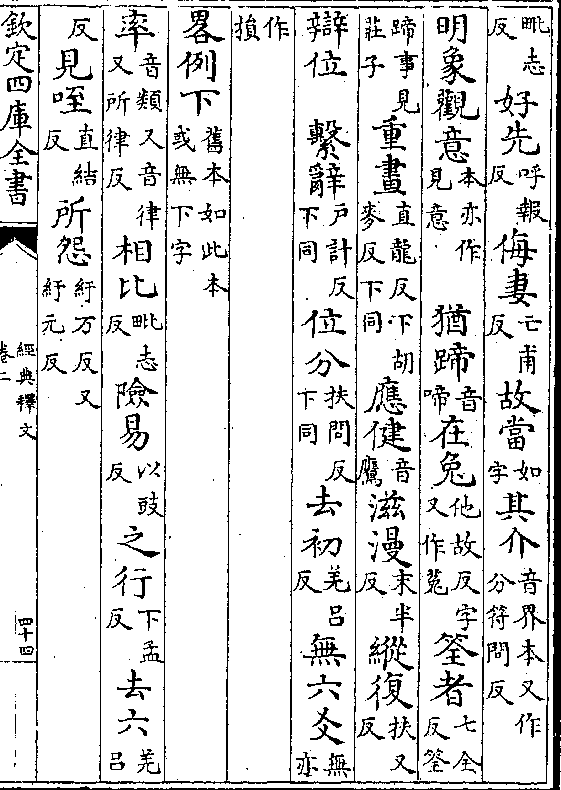 毗志反好先呼報反侮妻亡甫反故當如字其介音界本又作分符問反
明象觀意本亦作見意猶蹄音啼在兔他故反字又作菟筌者七全反筌
蹄事見莊子重畫直龍反下胡麥反下同應健音鷹滋漫末半反縱復扶又反
辯位繫辭戶計反下同位分扶問反下同去初羌呂反無六爻無亦
作損
畧例下舊本如此本或無下字
率音類又音律又所律反相比毗志反險易以豉反之行下孟反去六羌呂
反見咥直結反所怨紆万反又紆元反
欽定四庫全書
經典釋文
卷二
四十四